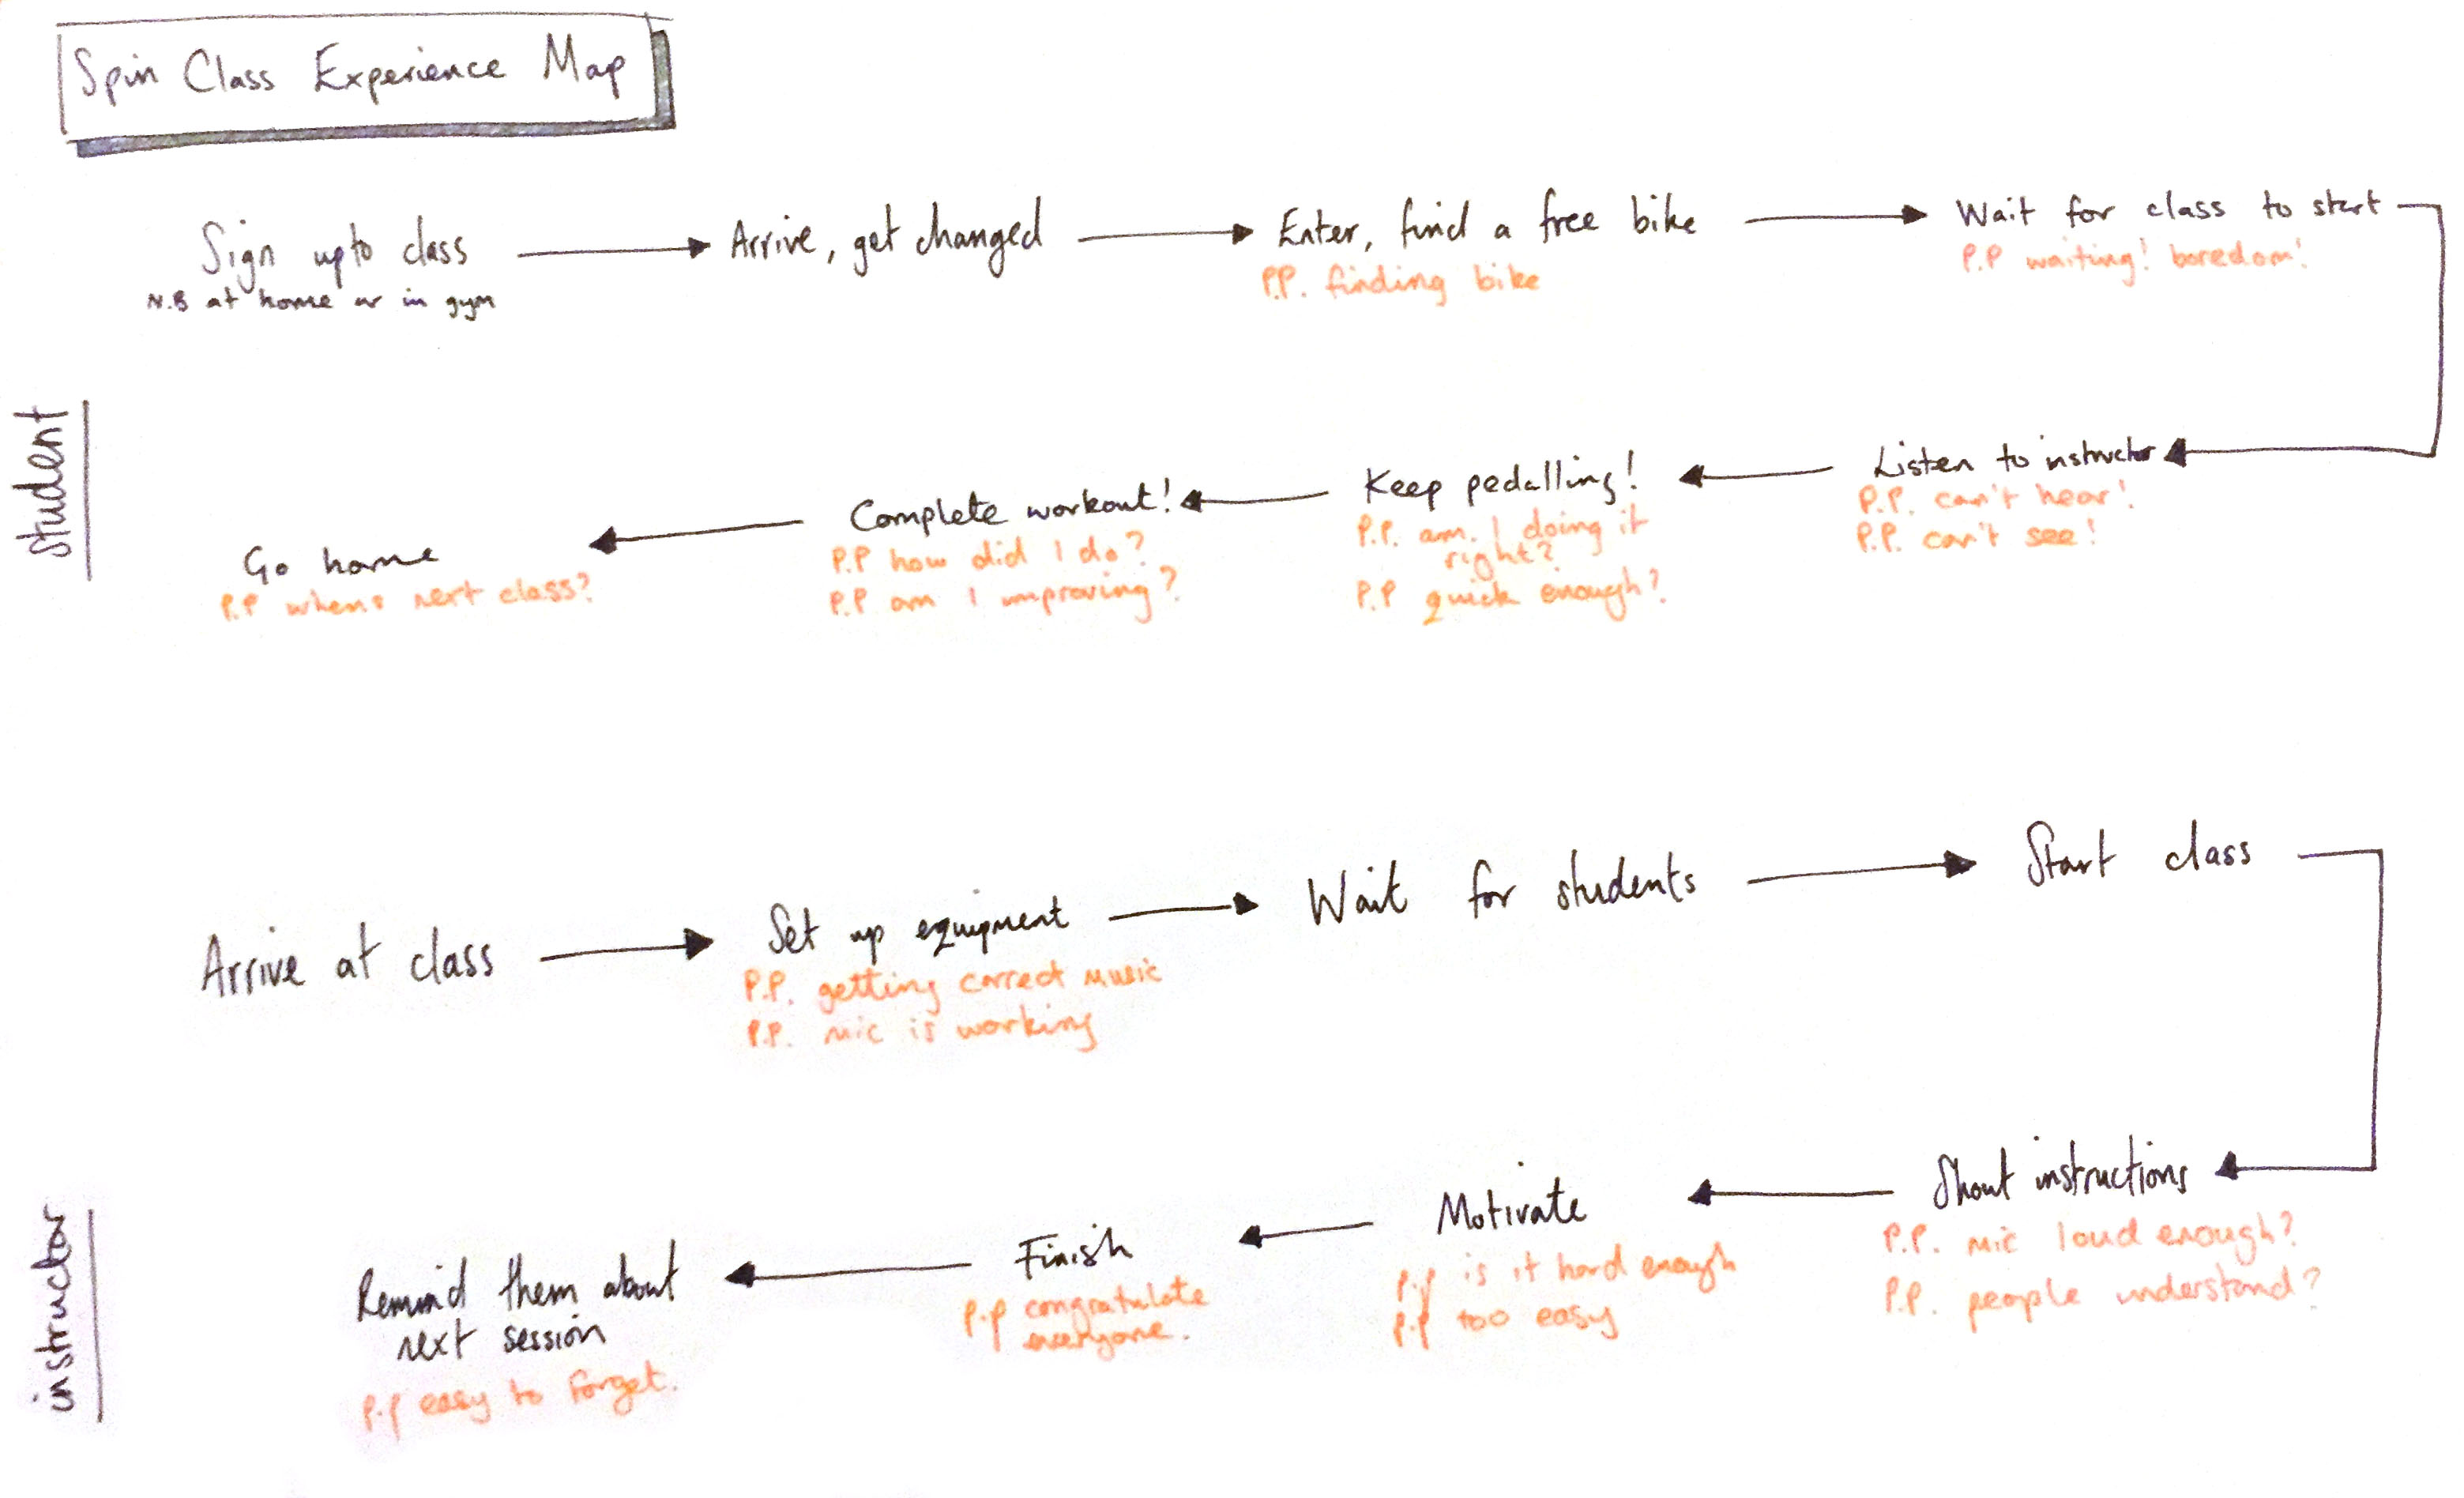 Spin Class Experience Map
Sign up to class
N.B at home or in gym
Arrive, get changed
Enter, find a free bike
P.P. finding bike
Wait for class to start
P.P waiting! boredom!
student
Listen to instructor
P.P. can't hear!
P.P. can't see!
Keep pedalling!
P.P. am I doing it
right?
P.P quick enough?
Complete workout!
P.P how did I do?
P.P am I improving?
Go home
P.P whens next class?
Arrive at class
Set up equipment
P.P. getting correct music
P.P. mic is working
Wait for students
Start class
instructor
Shout instructions
P.P. mic loud enough?
P.P. people understand?
Motivate
P.P is it hard enough
P.P too easy
Finish
P.P congratulate
everyone.
Remind them about
next session
P.P easy to forget.